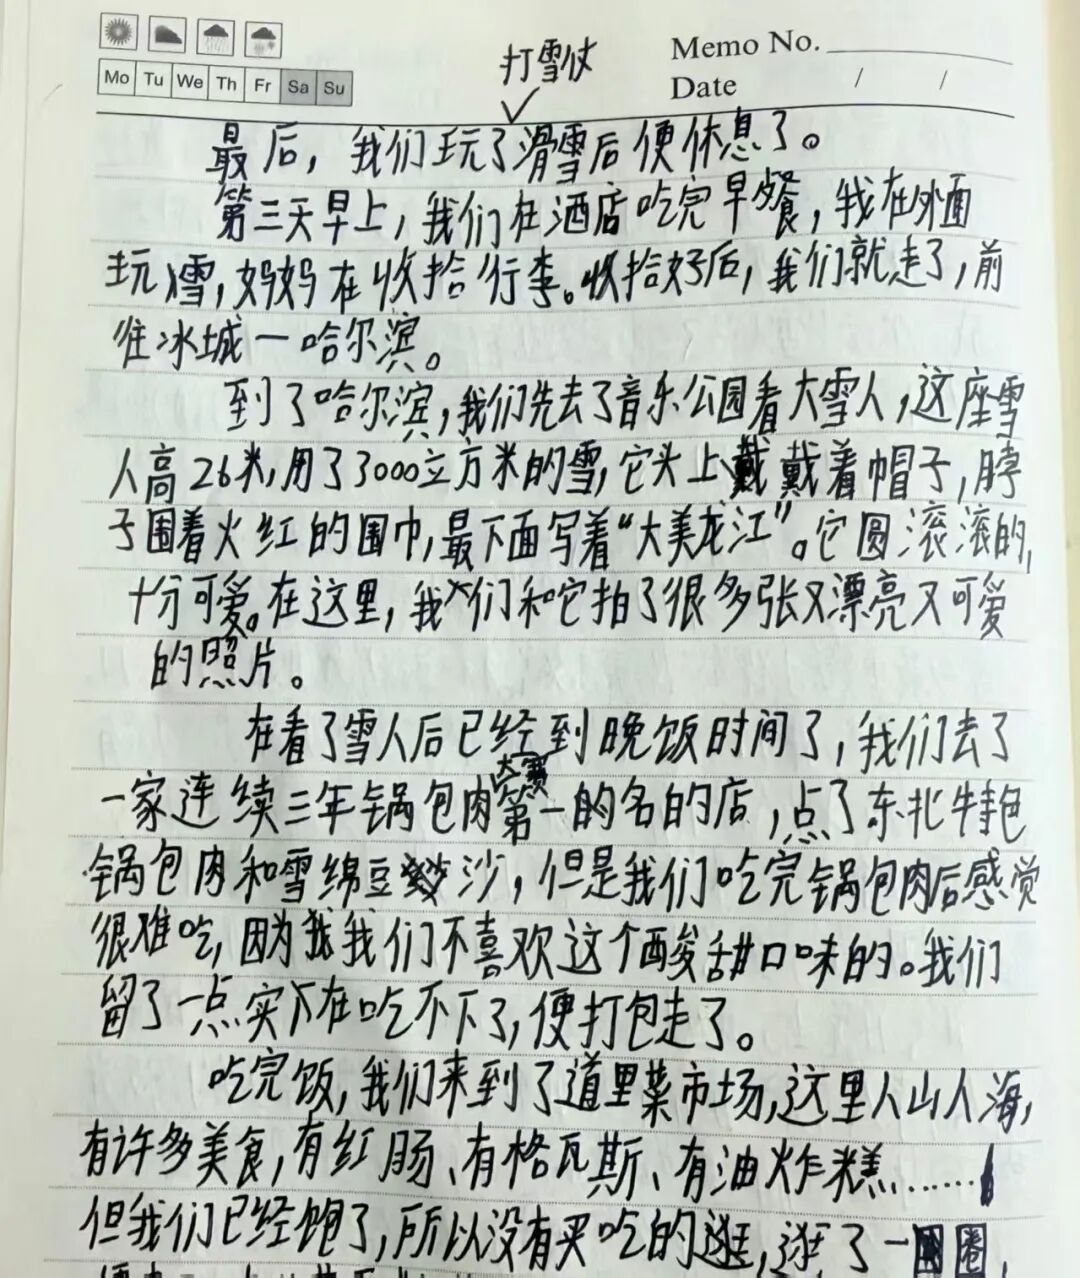 Mo Tu We Th Fr Sa Su
Memo No.
Date / /
打雪仗
最后，我们玩了滑雪后便休息了。
第三天早上，我们在酒店吃完早餐，我在外面
玩雪，妈妈在收拾行李。收拾好后，我们就走了，前
往冰城一哈尔滨。
到了哈尔滨，我们先去了音乐公园看大雪人，这座雪
人高26米，用了3000立方米的雪，它头上戴着帽子，脖
子围着火红的围巾，最下面写着“大美龙江”。它圆滚滚的，
十分可爱。在这里，我们和它拍了很多张又漂亮又可爱
的照片。
在看了雪人后已经到晚饭时间了，我们去了
大赛
一家连续三年锅包肉第一的名的店，点了东北特色
锅包肉和雪绵豆沙，但是我们吃完锅包肉后感觉
很难吃，因为我们不喜欢这个酸甜口味的。我们
留了一点实下在吃不下了，便打包走了。
吃完饭，我们来到了道里菜市场，这里人山人海，
有许多美食，有红肠、有格瓦斯、有油炸糕……
但我们已经饱了，所以没有买吃的逛，逛了一圈，